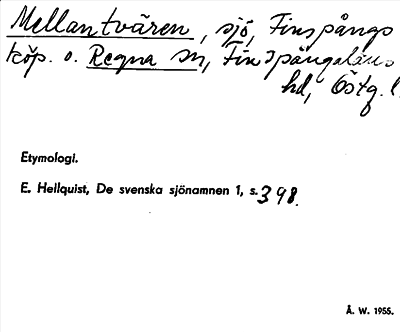 Mellantvären, sjö, Finspångs
köp. o. Regna sn, Finspångaläns
hd, Östg. l.
Etymologi.
E. Hellquist, De svenska sjönamnen 1, s. 398.
Å. W. 1955.